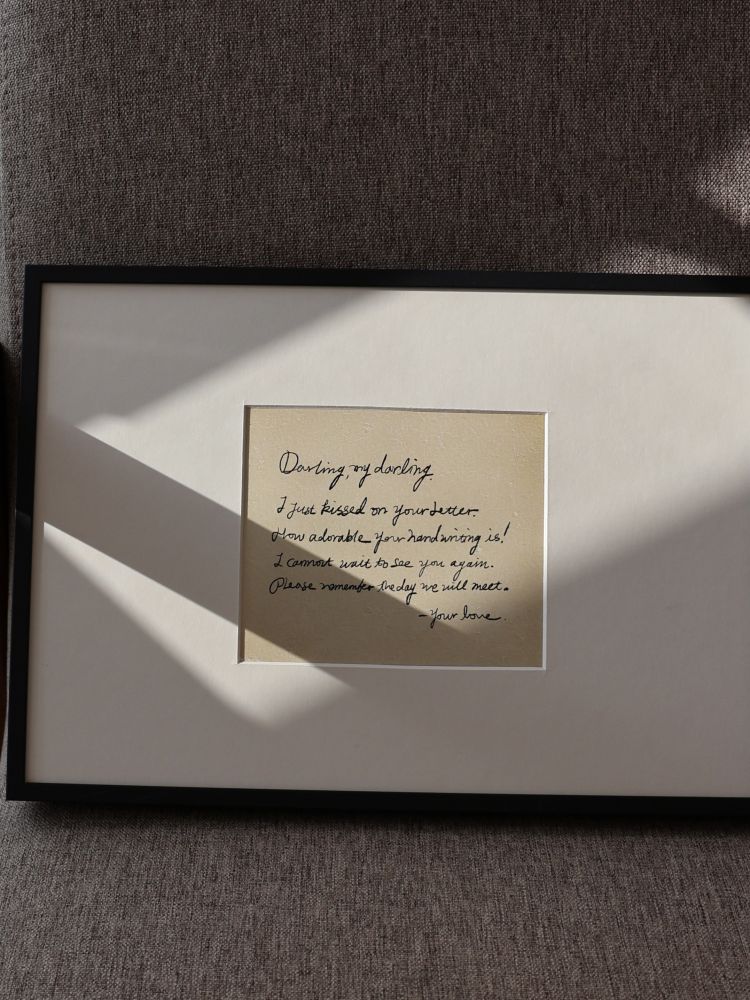 Darling, my darling.
I just kissed on your letter.
How adorable your handwriting is!
I cannout wait to see you again.
Please remember the day we will meet.
- your love.